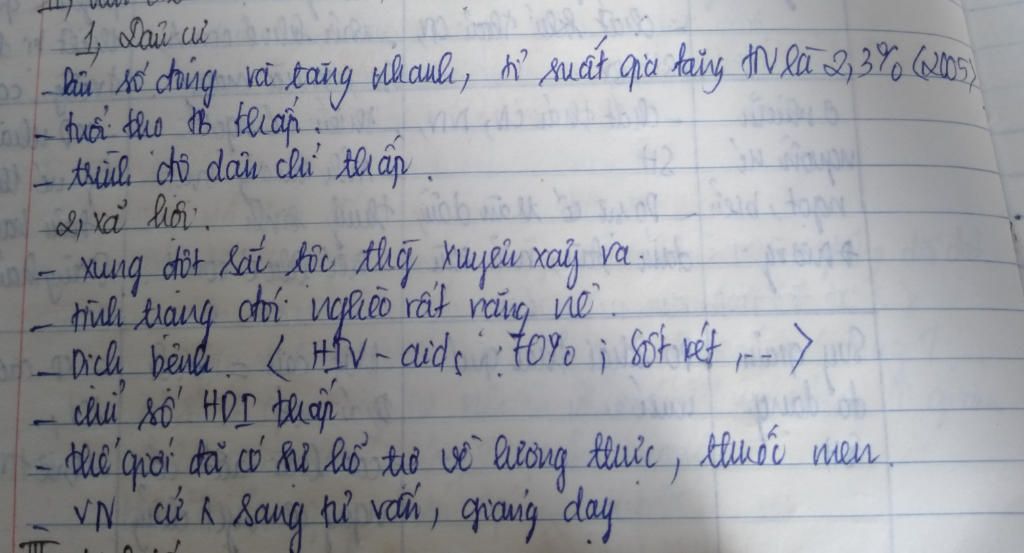 1, Dân cư
- Dân số đông và tăng nhanh, tỉ suất gia tăng TN là 2,3% (2005)
- tuổi thọ tb thấp.
- trình độ dân chí thấp.
2, xã hội.
- xung đột sắc tộc thg xuyên xảy ra.
- tình trạng đói nghèo rất nặng nề.
- Dịch bệnh. < HIV - aids : 70% ; sốt rét , -- >
- chỉ số HDI thấp
- thế giới đã có sự hỗ trợ về lương thực, thuốc men.
- VN cử sang tư vấn, giảng dạy
III